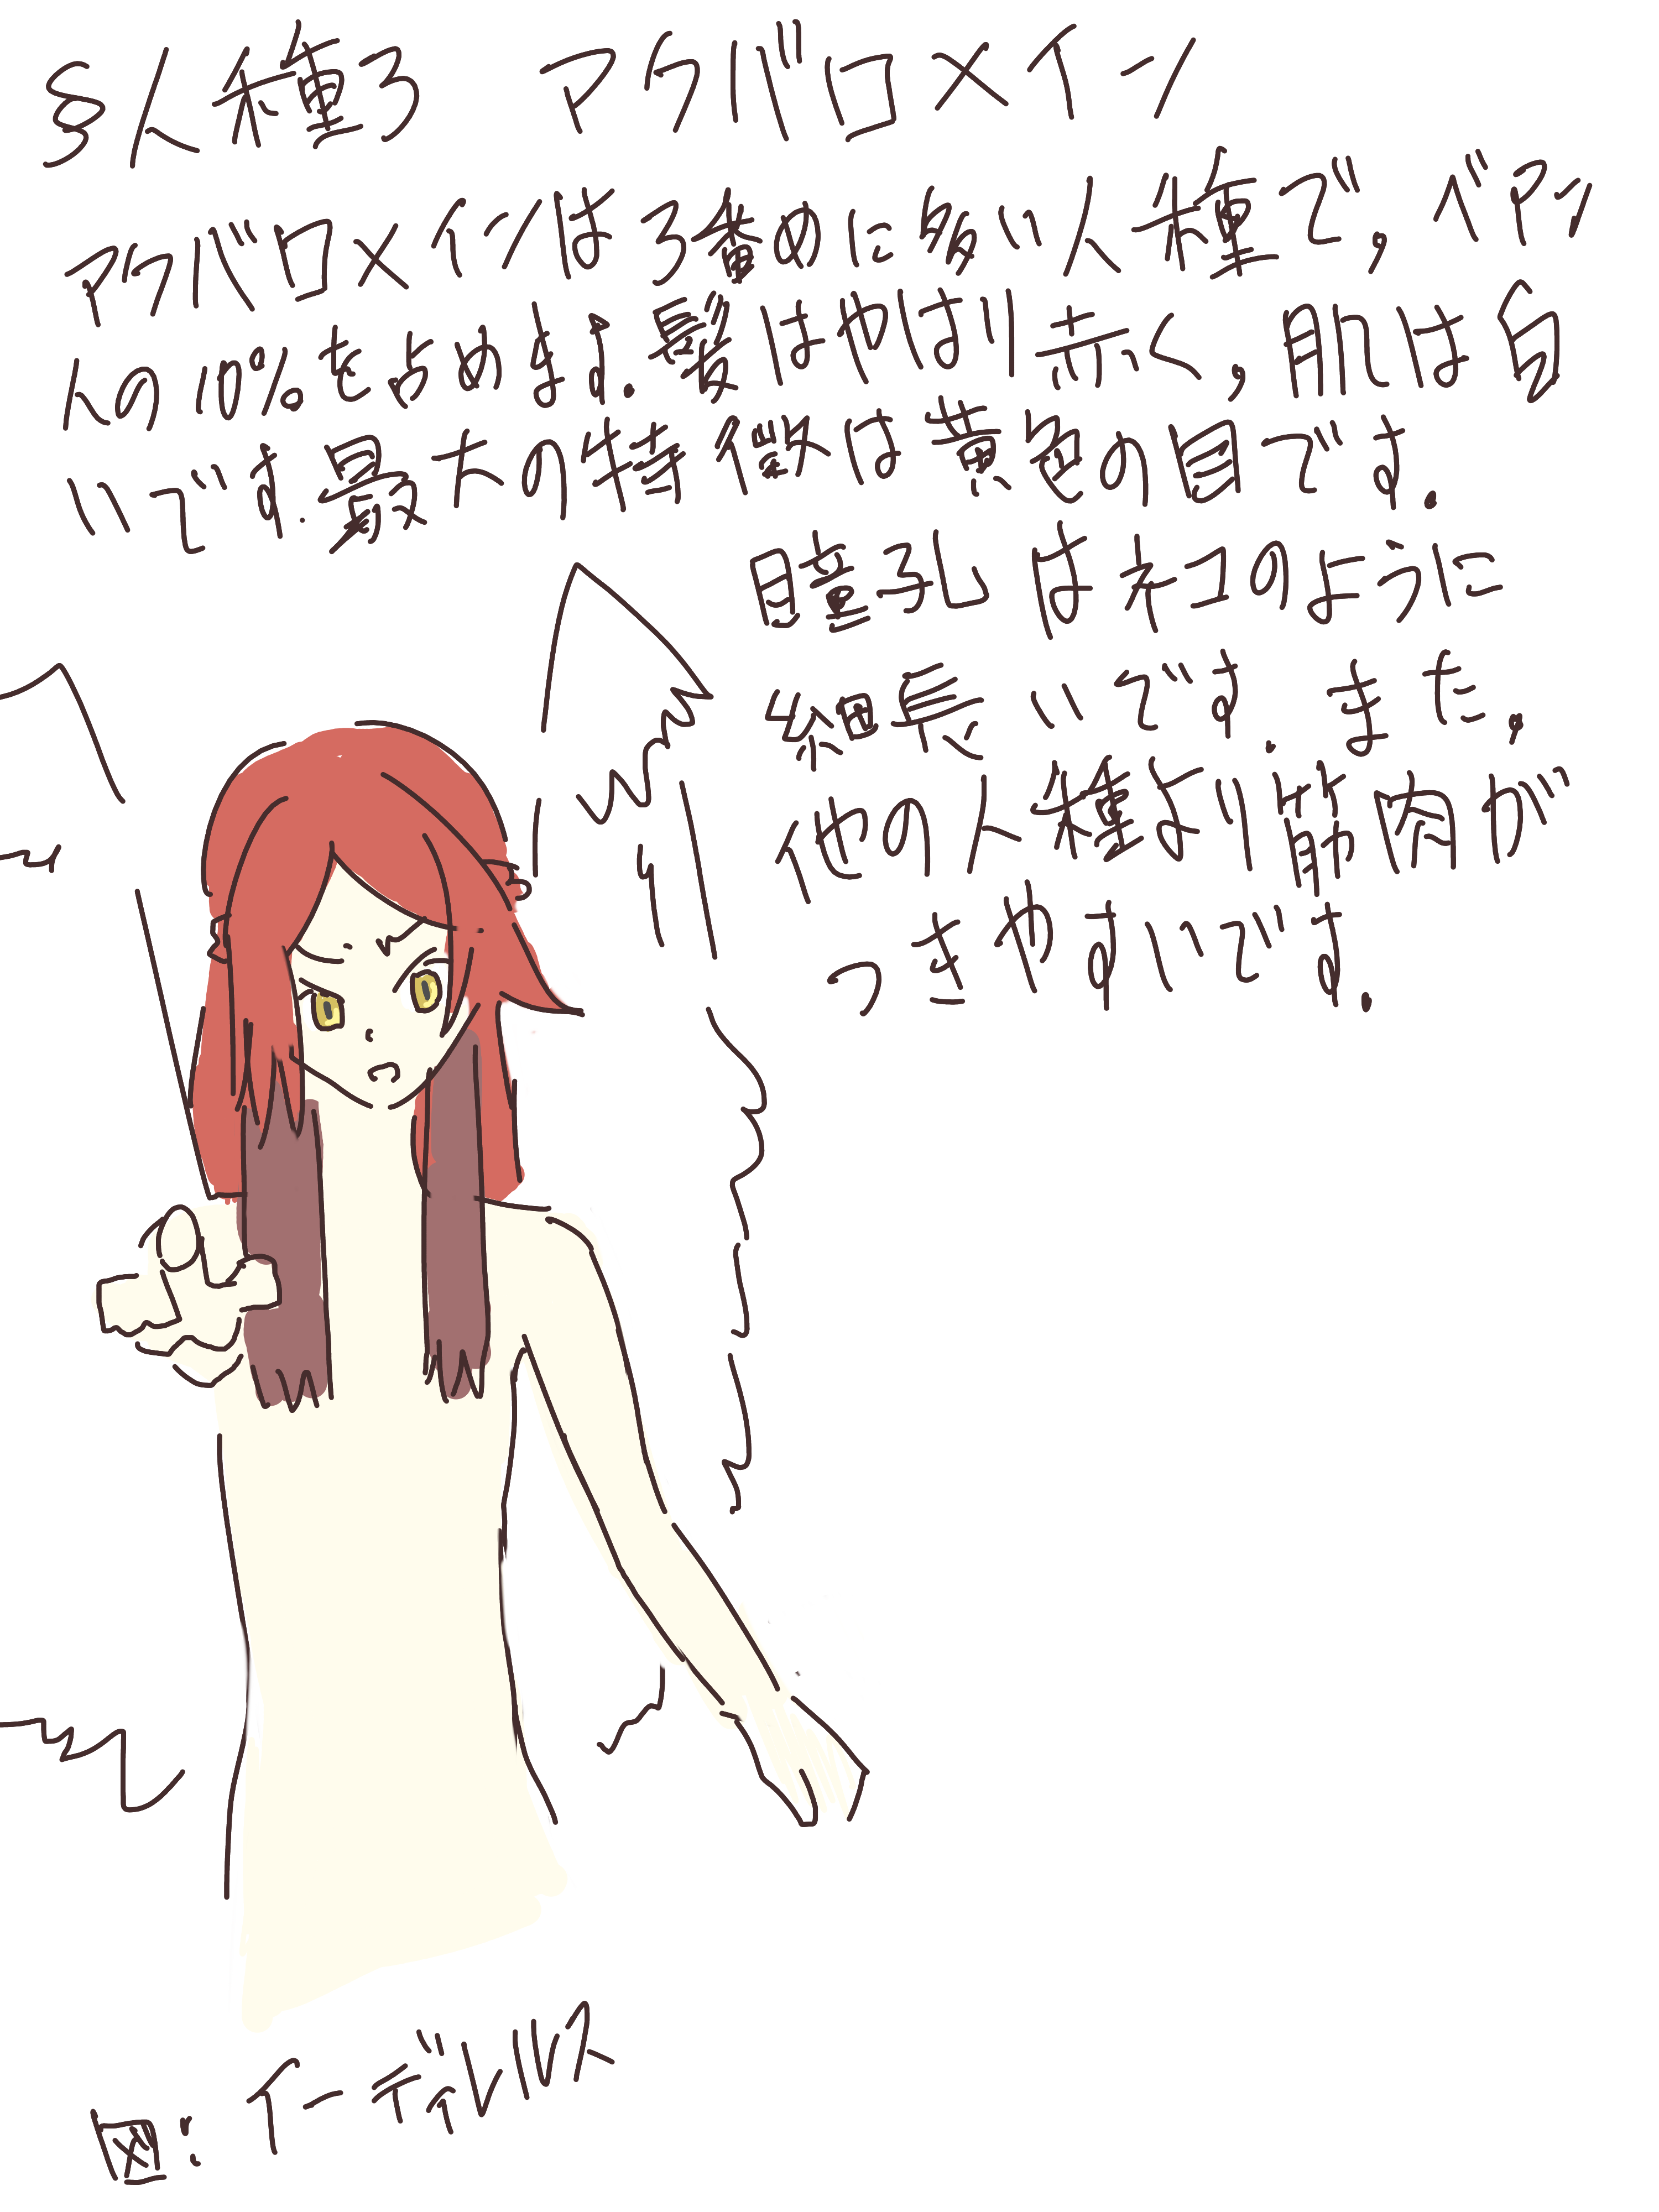 §人種3 アクバロメイン
アクバロメインは3番めに多い人種で,ベアン
人の10%をよめます.髪はやはり赤く,肌は白
いです.最大の特徴は黄色の目です.
瞳孔はネコのように
細長いです.また,
他の人種より筋肉が
つきやすいです.
図:イーディレルス